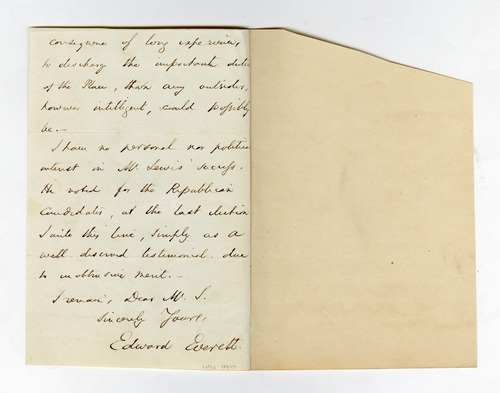 consequence of long experience
to discharge the important duties
of the Place, than any outsider,
however intelligent, could possibly
be.—
I have no personal nor political
interest in Mr Lewis' success.
He voted for the Republican
Candidates, at the last election
I write this line, simply as a
well deserved testimonial due
to unobtrusive merit.—
I remain, Dear Mr. S.
Sincerely Yours,
Edward Everett.